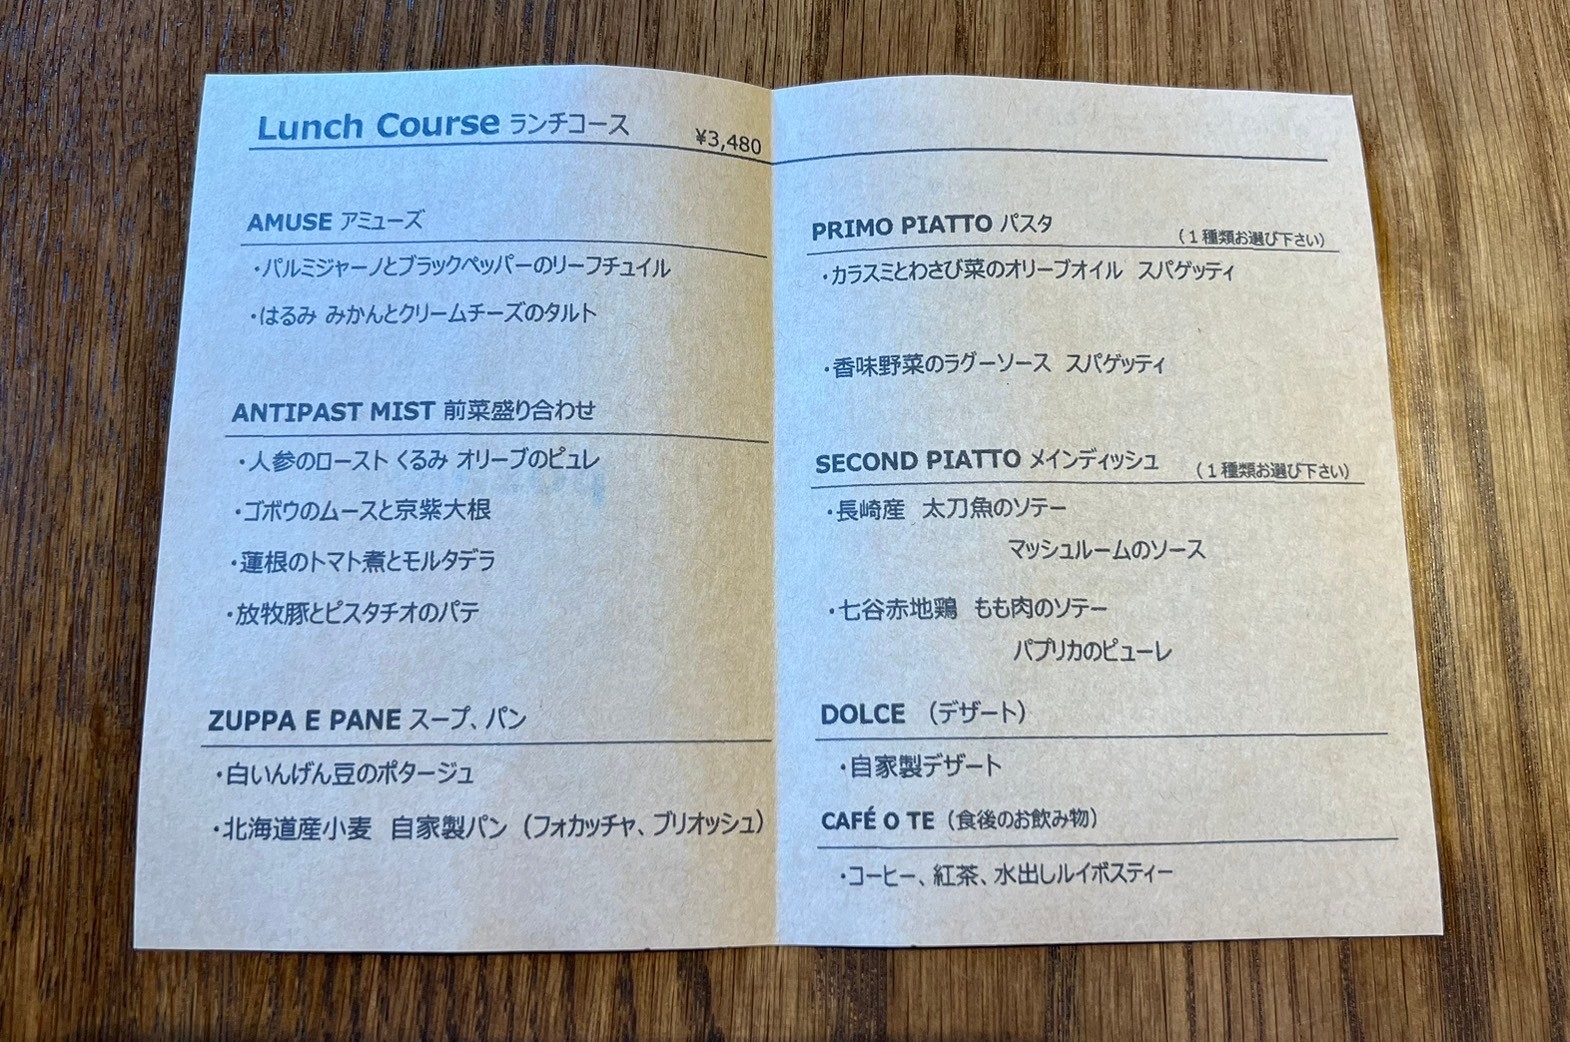 Lunch Course ランチコース ¥3,480
AMUSE アミューズ
・パルミジャーノとブラックペッパーのリーフチュイル
・はるみ みかんとクリームチーズのタルト
ANTIPAST MIST 前菜盛り合わせ
・人参のロースト くるみ オリーブのピュレ
・ゴボウのムースと京紫大根
・蓮根のトマト煮とモルタデラ
・放牧豚とピスタチオのパテ
ZUPPA E PANE スープ、パン
・白いんげん豆のポタージュ
・北海道産小麦 自家製パン（フォカッチャ、ブリオッシュ）
PRIMO PIATTO パスタ （１種類お選び下さい）
・カラスミとわさび菜のオリーブオイル スパゲッティ
・香味野菜のラグーソース スパゲッティ
SECOND PIATTO メインディッシュ （１種類お選び下さい）
・長崎産 太刀魚のソテー
マッシュルームのソース
・七谷赤地鶏 もも肉のソテー
パプリカのピューレ
DOLCE （デザート）
・自家製デザート
CAFÉ O TE（食後のお飲み物）
・コーヒー、紅茶、水出しルイボスティー